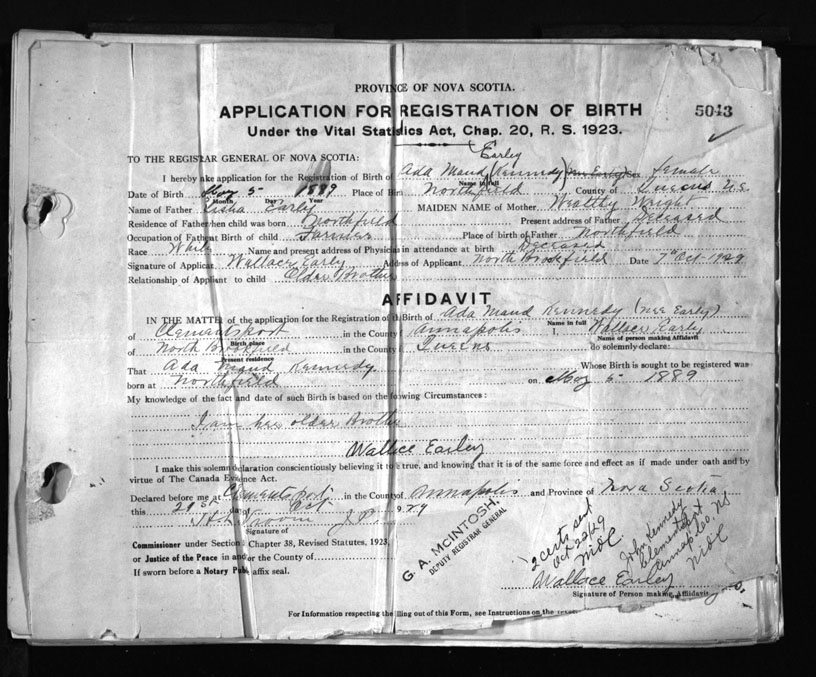 PROVINCE OF NOVA SCOTIA.
APPLICATION FOR REGISTRATION OF BIRTH 5043
Under the Vital Statistics Act, Chap. 20, R. S. 1923.
TO THE REGISTRAR GENERAL OF NOVA SCOTIA: Earley
I hereby make application for the Registration of Birth of Ada Maud (Kennedy) Sex female
Name in full
Date of Birth May 5 1889 Place of Birth Northfield County of Queens N.S.
Month Day Year
Name of Father Early MAIDEN NAME of Mother Wealthy Wright
Residence of Father when child was born Northfield Present address of Father Deceased
Occupation of Father at Birth of child Farmer Place of birth of Father Northfield
Race White Name and present address of Physician in attendance at birth Deceased
Signature of Applicant Wallace Earley Address of Applicant North Brookfield Date 7th Oct - 1929
Relationship of Applicant to child Older Brother
AFFIDAVIT
IN THE MATTER of the application for the Registration of Birth of Ada Maud Kennedy (nee Early)
Name in full
of Clementsport in the County of Annapolis I, Wallace Early
Birth place Name of person making Affidavit
of North Brookfield in the County of Queens do solemnly declare:
Present residence
That Ada Maud Kennedy Whose Birth is sought to be registered was
born at Northfield on May 5 1889
My knowledge of the fact and date of such Birth is based on the following Circumstances:
I am her older Brother
Wallace Earley
I make this solemn declaration conscientiously believing it to be true, and knowing that it is of the same force and effect as if made under oath and by
virtue of The Canada Evidence Act.
Declared before me at Clementsport in the County of Annapolis and Province of Nova Scotia
this 21st day of Oct 1929
J.P.
Signature of
Commissioner under Section Chapter 38, Revised Statutes, 1923,
or Justice of the Peace in and for the County of
If sworn before a Notary Public affix seal.
G. A. McINTOSH,
DEPUTY REGISTRAR GENERAL
2 certs sent
Oct 23/29
MDC
John Kennedy
Clementsport
Annap. Co. NS
MDC
Wallace Earley
Signature of Person making Affidavit
For Information respecting the filling out of this Form, see Instructions on the